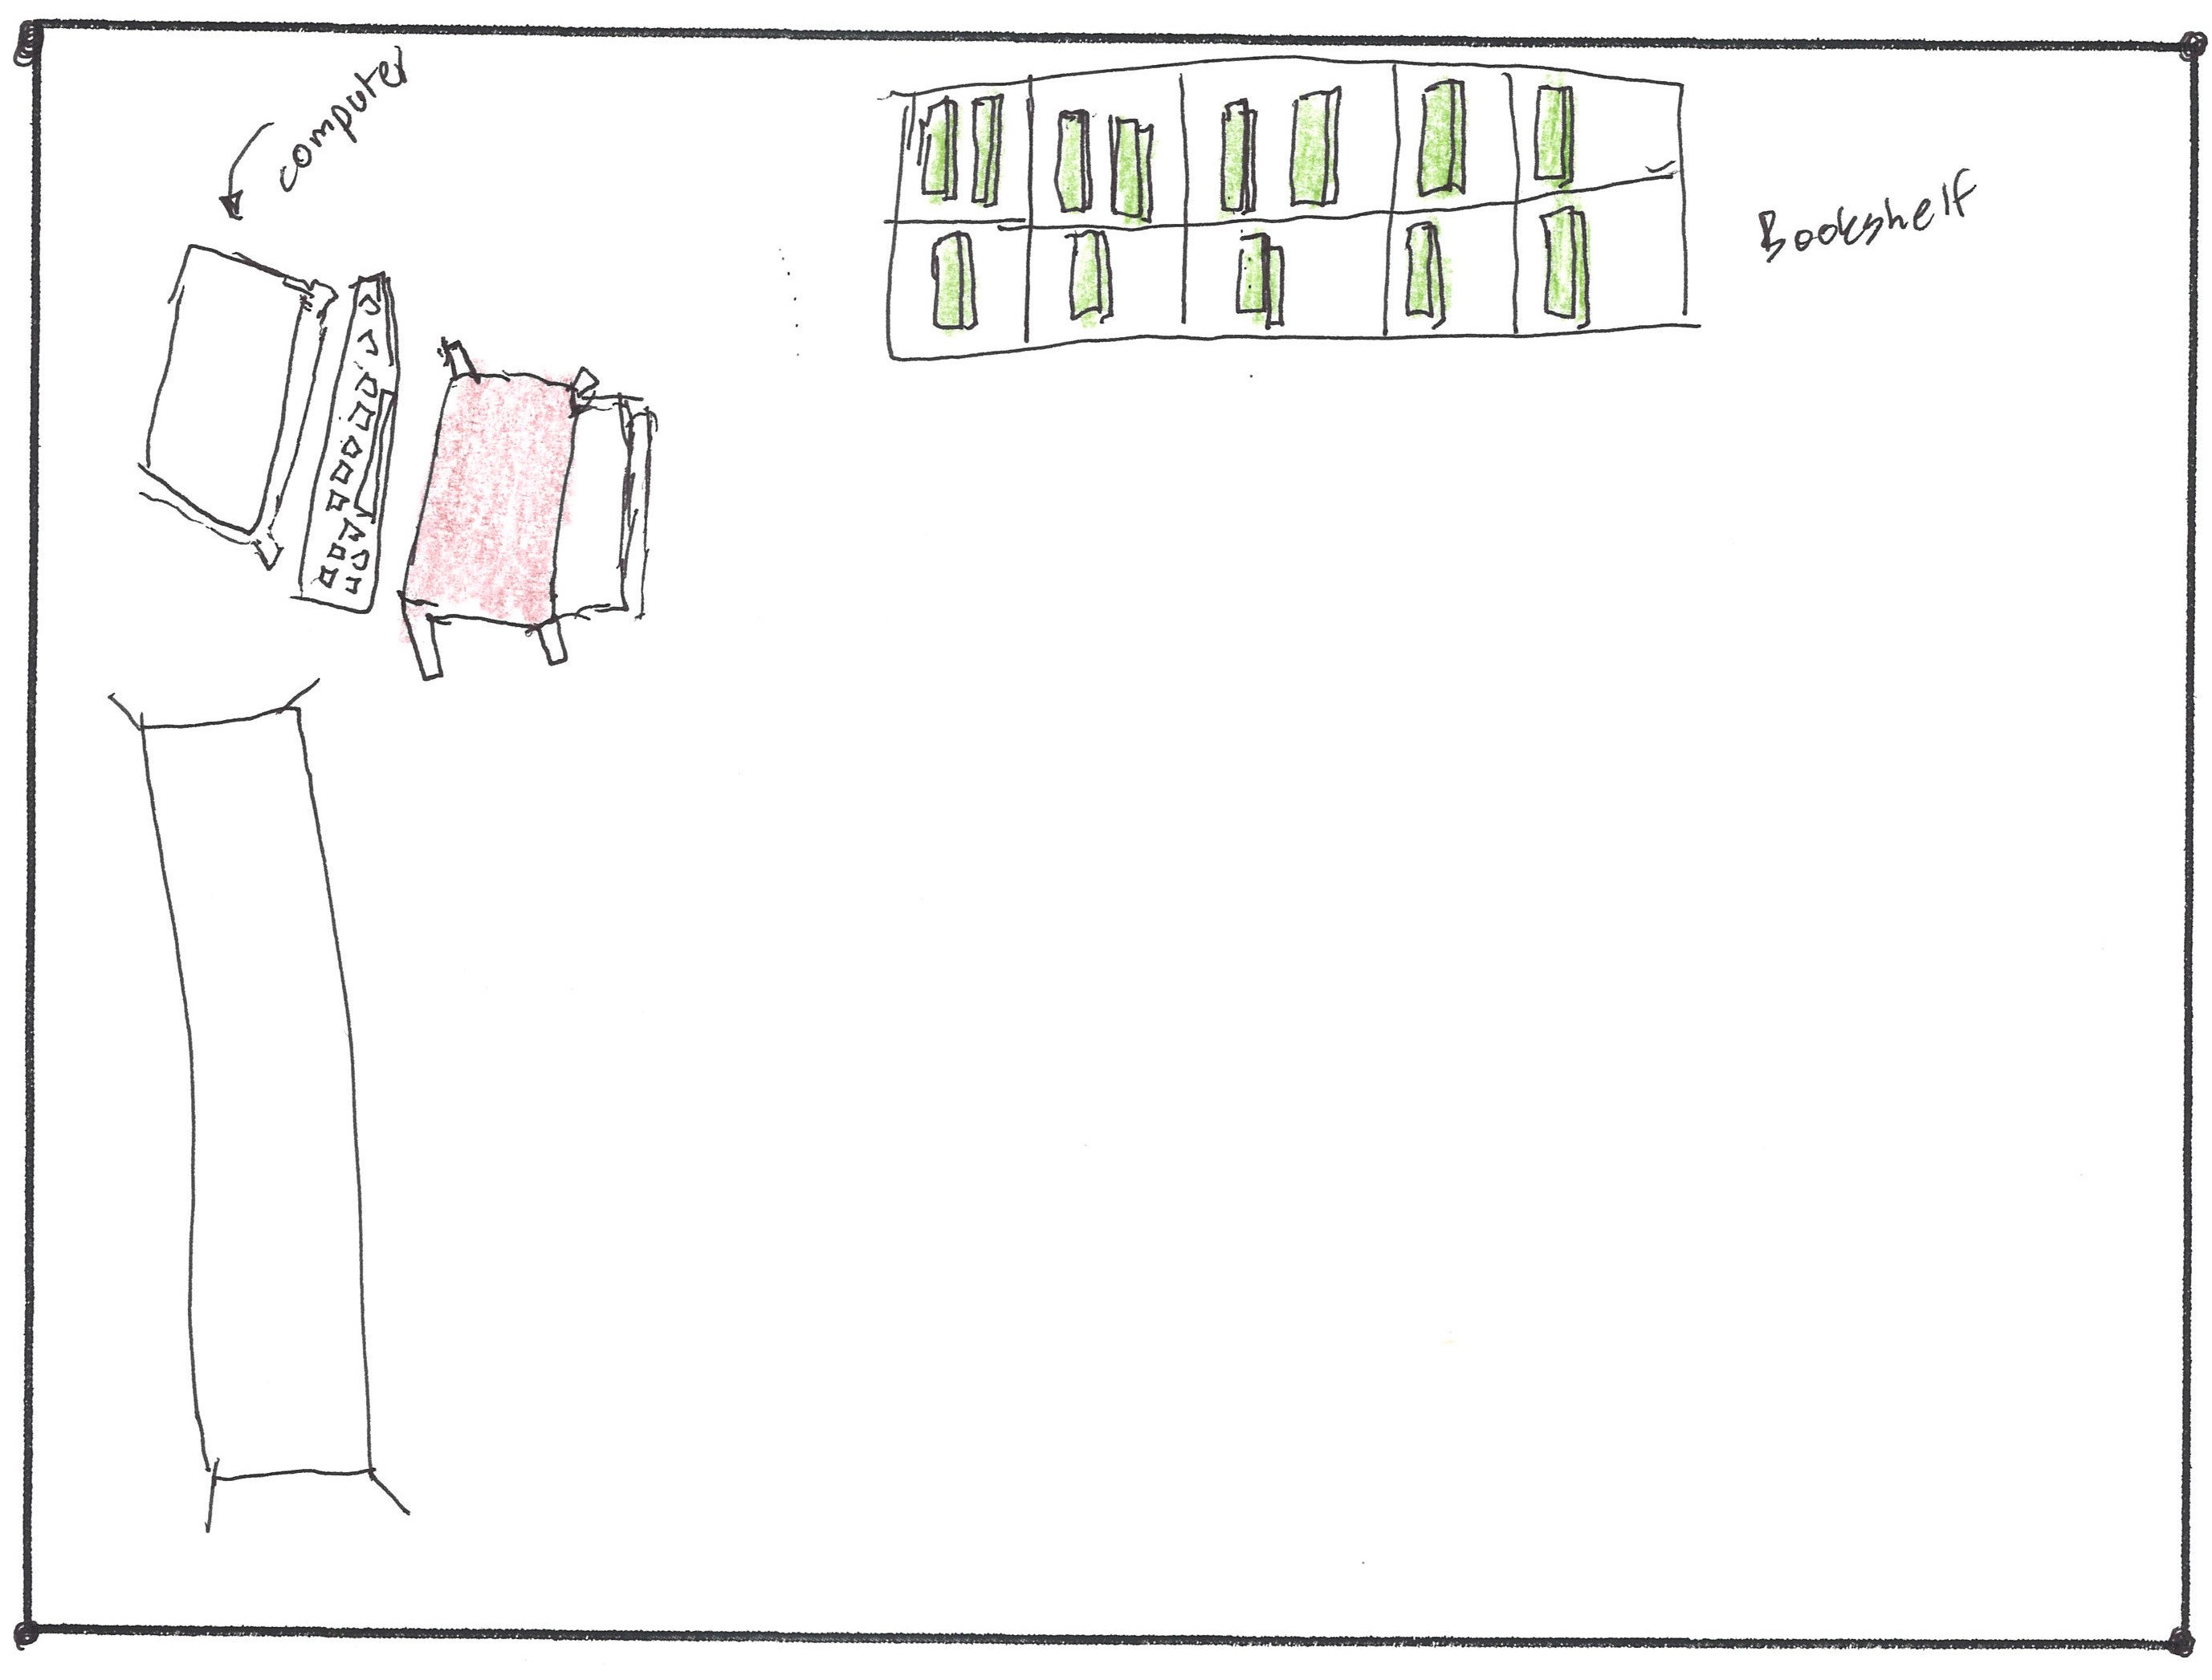 computer
Bookshelf